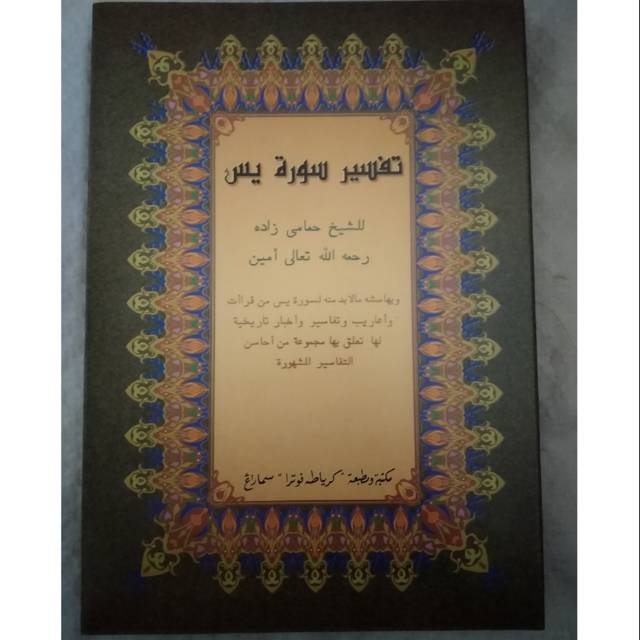 تفسير سورة يس
للشيخ حمامى زاده
رحمه الله تعالى أمين
وبهامشه مالابد منه لسورة يس من قراآت
وأعاريب وتفاسير وأخبار تاريخية
لها تعلق بها مجموعة من أحاسن
التفاسير المشهورة
مكتبة ومطبعة "كرياطه فوترا" سماراڠ